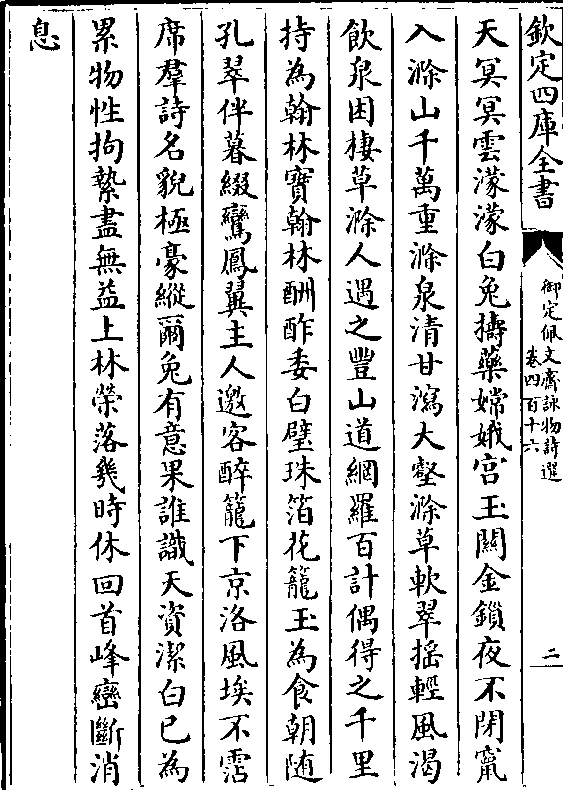 欽定四庫全書
御定佩文齋詠物詩選
卷四百十六
二
天冥冥雲濛濛白兔擣藥嫦娥宮玉關金鎖夜不閉竄
入滁山千萬重滁泉清甘瀉大壑滁草軟翠揺輕風渴
飲泉困棲草滁人遇之豐山道網羅百計偶得之千里
持為翰林寶翰林酬酢委白璧珠箔花籠玉為食朝随
孔翠伴暮綴鸞鳳翼主人邀客醉籠下京洛風埃不霑
席羣詩名貌極豪縱爾兔有意果誰識天資潔白已為
累物性拘縶盡無益上林榮落幾時休回首峰巒斷消
息